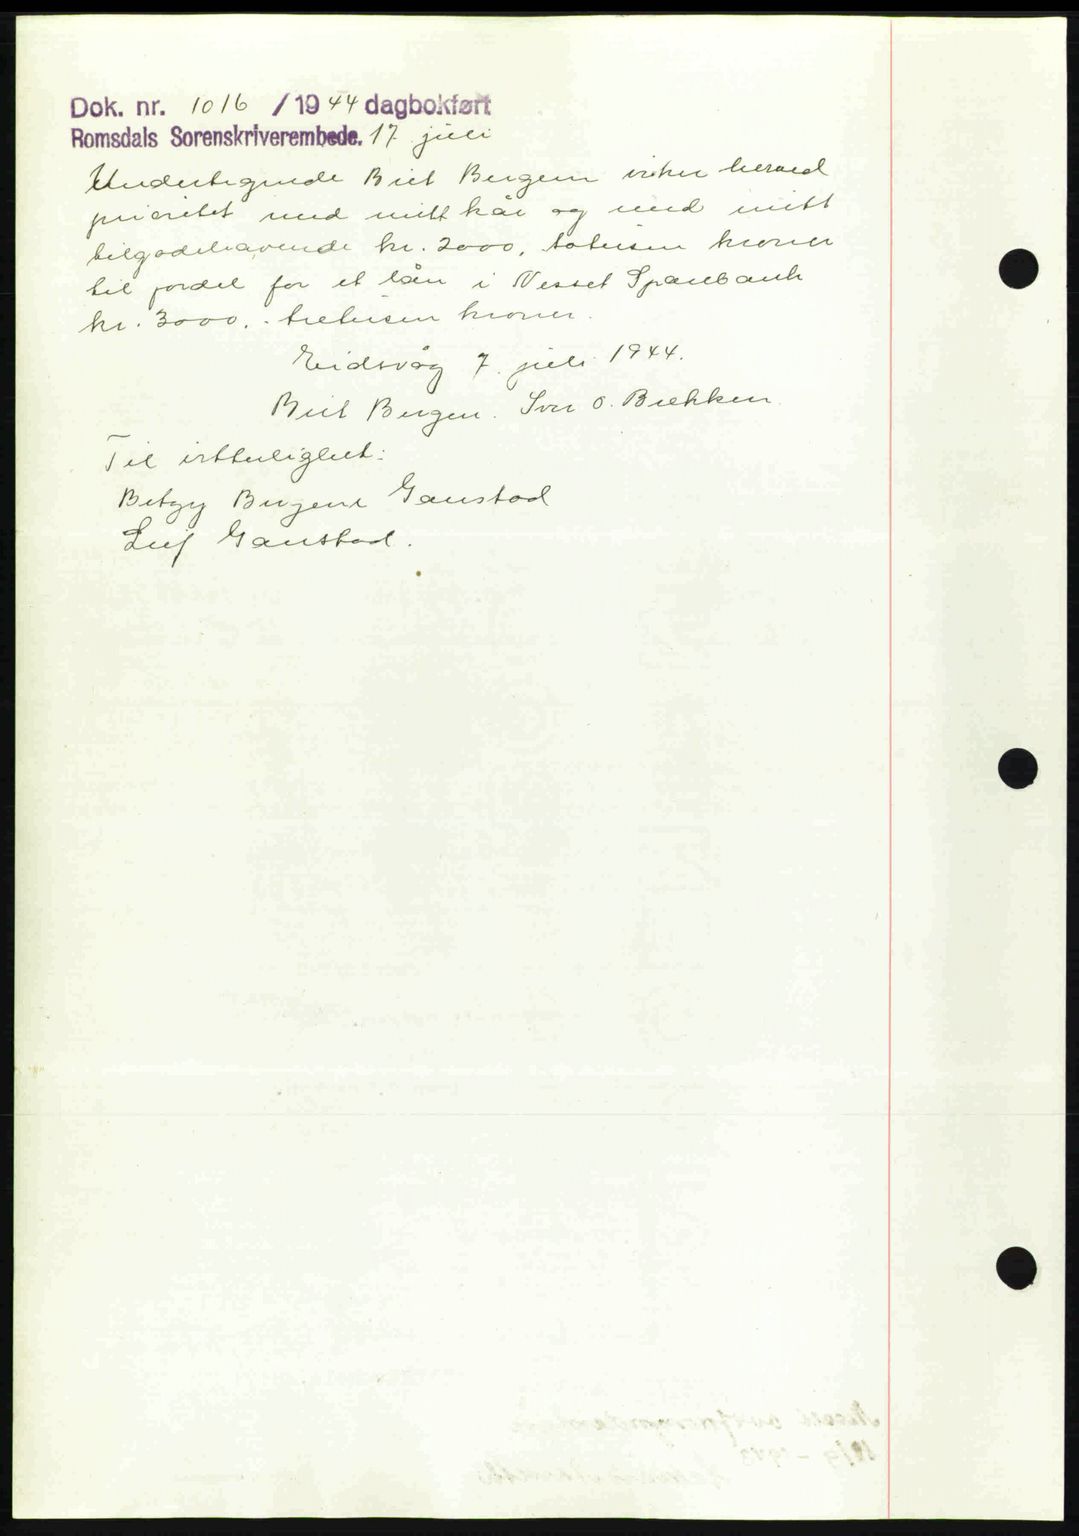 Dok. nr. 1016 / 1944 dagbokført
Romsdals Sorenskriverembede. 17 juli
Undertegnede Brit Bergem viker herved
prioritet med mitt kår og med mitt
tilgodehavende kr. 2000, totusen kroner
til fordel for et lån i Nesset Sparebank
kr. 3000,. tretusen kroner.
Eidsvåg 7. juli 1944.
Brit Bergem. Iver O. Brekken
Til vitterlighet:
Betzy Bergem Gaustad
Leif Gaustad.